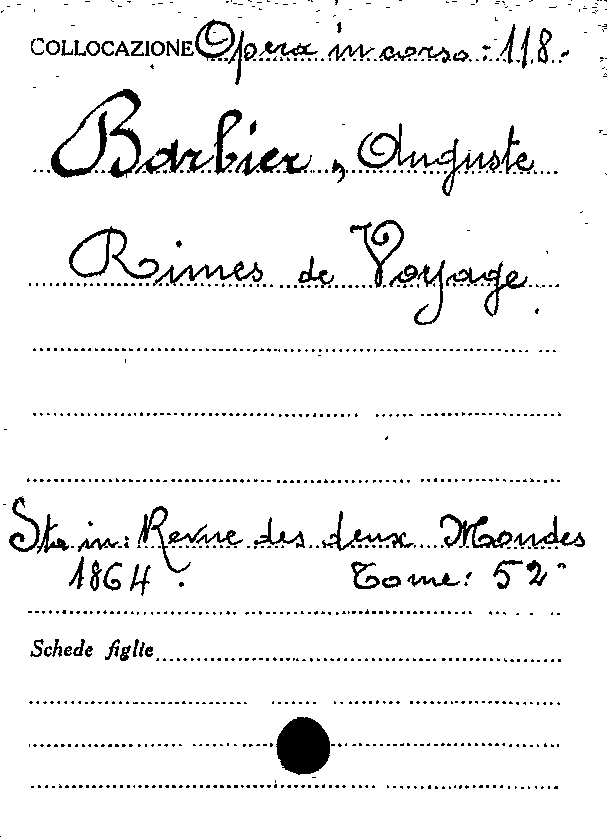 COLLOCAZIONE Opera in corso: 118.
Barbier, Auguste
Rimes de Voyage.
Sta in: Revue des deux Mondes
1864. Tome: 52°
Schede figlie